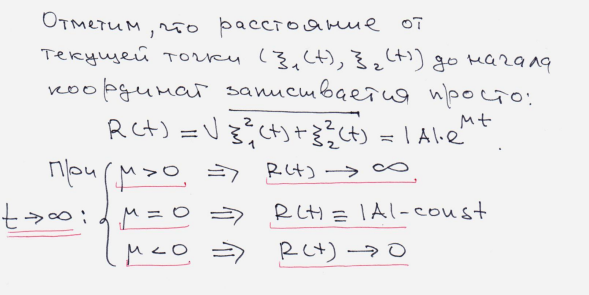 Отметим, что расстояние от
текущей точки (ξ₁(t), ξ₂(t)) до начала
координат записывается просто:
R(t) = √ξ₁²(t)+ξ₂²(t) = |A|·e^μt.
При { μ>0 ⇒ R(t) → ∞
t→∞: { μ=0 ⇒ R(t) ≡ |A|-const
μ<0 ⇒ R(t) → 0